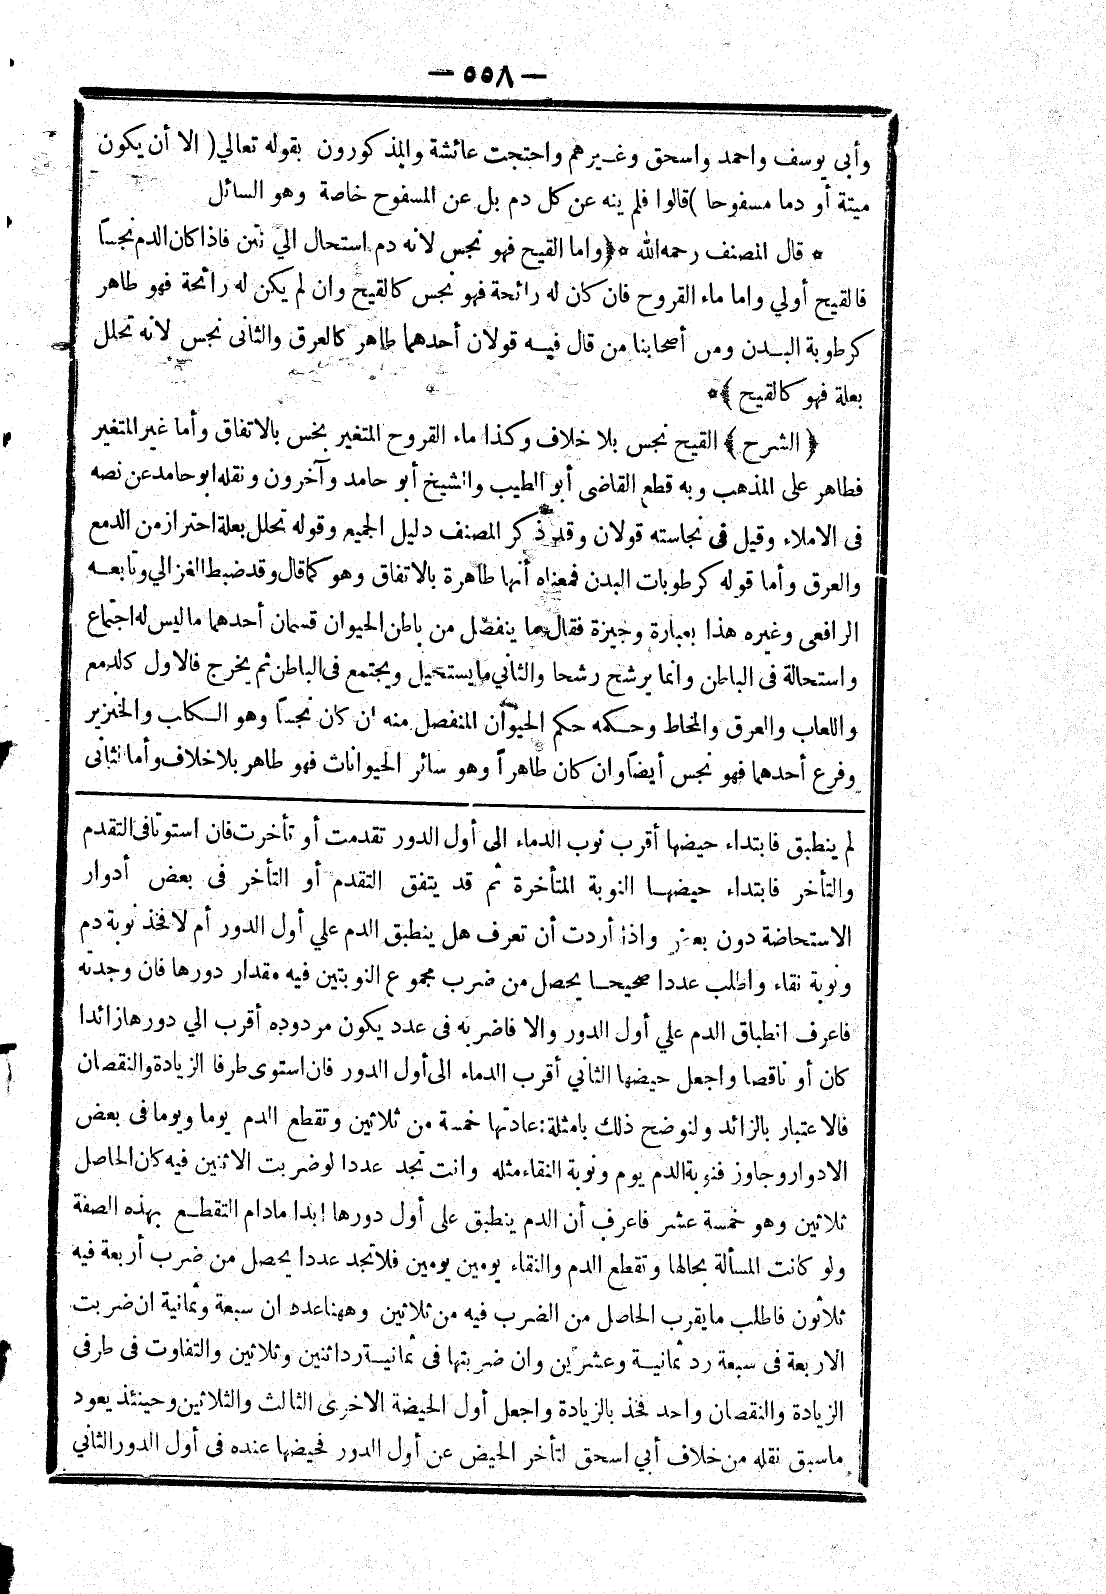 — ٥٥٨ —
وأبى يوسف واحمد واسحق وغيرهم واحتجت عائشة والمذكورون بقوله تعالي( الا أن يكون
ميتة أو دما مسفوحا )قالوا فلم ينه عن كل دم بل عن المسفوح خاصة وهو السائل
* قال المصنف رحمه الله *﴿واما القيح فهو نجس لانه دم استحال الي نتن فاذا كان الدم نجساً
فالقيح أولي واما ماء القروح فان كان له رائحة فهو نجس كالقيح وان لم يكن له رائحة فهو طاهر
كرطوبة البدن ومن أصحابنا من قال فيه قولان أحدهما طاهر كالعرق والثانى نجس لانه تحلل
بعلة فهو كالقيح ﴾*
﴿ الشرح ﴾ القيح نجس بلا خلاف وكذا ماء القروح المتغير نجس بالاتفاق وأما غير المتغير
فطاهر على المذهب وبه قطع القاضى أبو الطيب والشيخ أبو حامد وآخرون ونقله ابو حامد عن نصه
فى الاملاء وقيل فى نجاسته قولان وقد ذكر المصنف دليل الجميع وقوله تحلل بعلة احتراز من الدمع
والعرق وأما قوله كرطوبات البدن فمعناه أنها طاهرة بالاتفاق وهو كما قال وقد ضبط الغزالي وتابعه
الرافعى وغيره هذا بعبارة وجيزة فقال ما ينفصل من باطن الحيوان قسمان أحدهما ما ليس له اجتماع
واستحالة فى الباطن وانما يرشح رشحا والثاني ما يستحيل ويجتمع فى الباطن ثم يخرج فالاول كالدمع
واللعاب والعرق والمخاط وحكمه حكم الحيوان المنفصل منه ان كان نجساً وهو الكلب والخنزير
وفرع أحدهما فهو نجس أيضاً وان كان طاهراً وهو سائر الحيوانات فهو طاهر بلا خلاف وأما الثانى
لم ينطبق فابتداء حيضها أقرب نوب الدماء الى أول الدور تقدمت أو تأخرت فان استوتا فى التقدم
والتأخر فابتداء حيضها النوبة المتأخرة ثم قد يتفق التقدم أو التأخر فى بعض أدوار
الاستحاضة دون بعض واذا أردت أن تعرف هل ينطبق الدم علي أول الدور أم لا فخذ نوبة دم
ونوبة نقاء واطلب عددا صحيحا يحصل من ضرب مجموع النوبتين فيه مقدار دورها فان وجدته
فاعرف انطباق الدم علي أول الدور والا فاضربه فى عدد يكون مردوده أقرب الي دورها زائدا
كان أو ناقصا واجعل حيضها الثاني أقرب الدماء الى أول الدور فان استوى طرفا الزيادة والنقصان
فالاعتبار بالزائد ولنوضح ذلك بامثلة: عادتها خمسة من ثلاثين وتقطع الدم يوما ويوما فى بعض
الادوار وجاوز فنوبة الدم يوم ونوبة النقاء مثله وانت تجد عددا لو ضربت الاثنين فيه كان الحاصل
ثلاثين وهو خمسة عشر فاعرف أن الدم ينطبق على أول دورها ابدا مادام التقطع بهذه الصفة
ولو كانت المسألة بحالها وتقطع الدم والنقاء يومين يومين فلا تجد عددا يحصل من ضرب أربعة فيه
ثلاثون فاطلب ما يقرب الحاصل من الضرب فيه من ثلاثين وههنا عددان سبعة وثمانية ان ضربت
الاربعة فى سبعة رد ثمانية وعشرين وان ضربتها فى ثمانية رد اثنين وثلاثين والتفاوت فى طرفى
الزيادة والنقصان واحد فخذ بالزيادة واجعل أول الحيضة الاخرى الثالث والثلاثين وحينئذ يعود
ماسبق نقله من خلاف أبي اسحق لتأخر الحيض عن أول الدور فحيضها عنده فى أول الدور الثاني